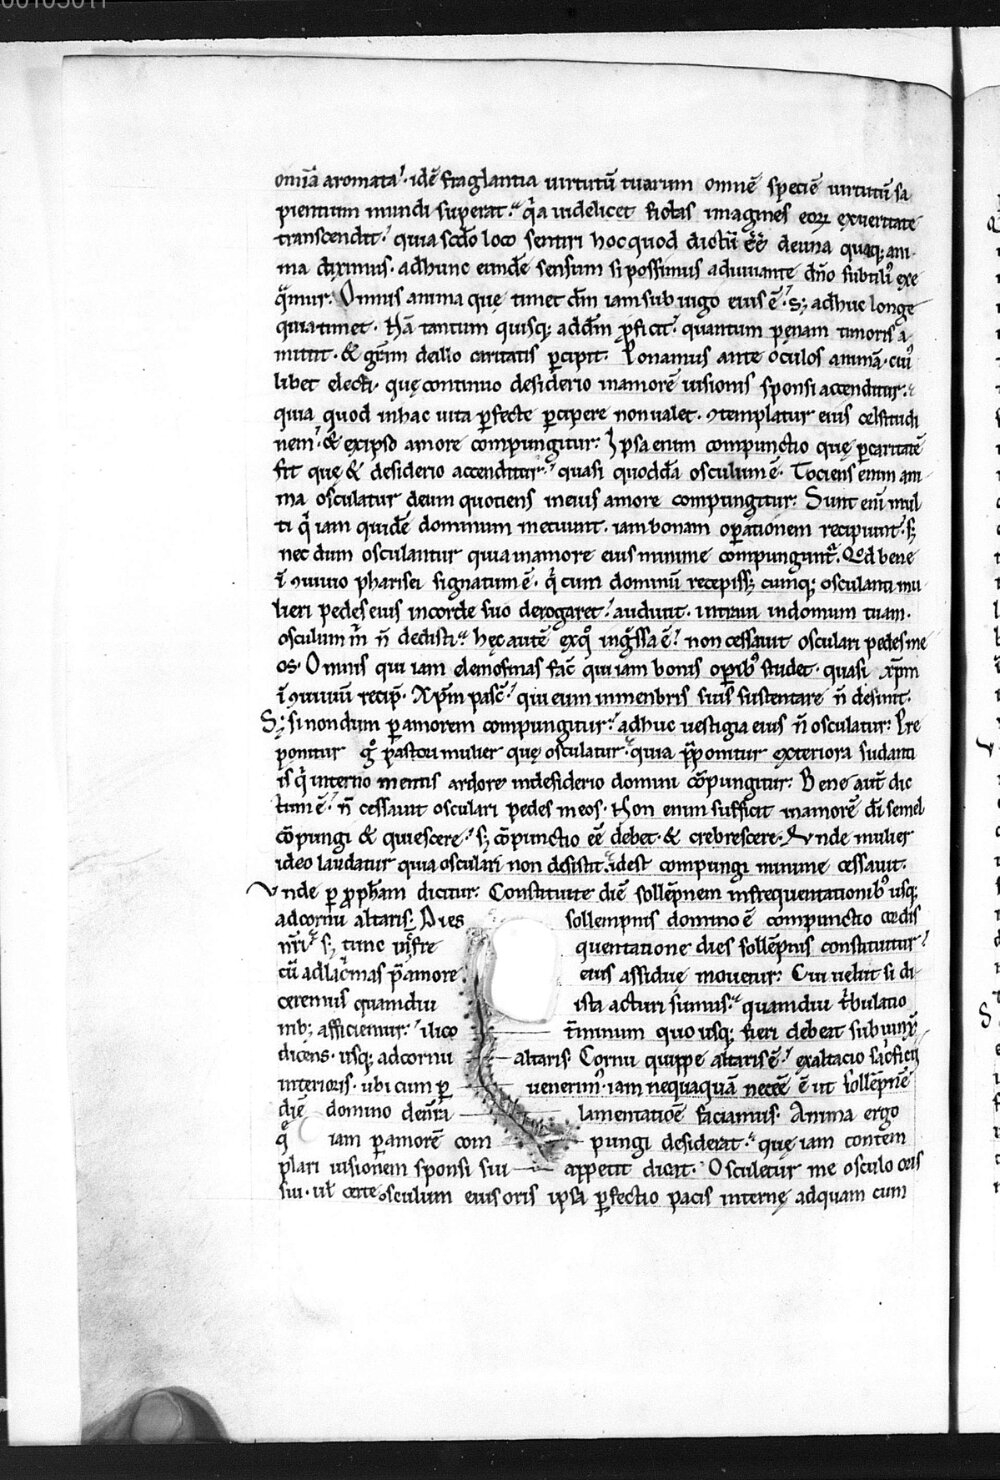 00105011
om̅ia aromata · idē fraglantia uirtutū tuarum omnē speciē uirtutū sa
pientium mundi superat. q̇a uidelicet fictas imagines eoꝝ ex ueritate
transcendit. quia scd̅o loco sentiri hoc quod dictū ēē de una quaq; ani
ma diximus. adhunc eundē sensum si possimus adiuuante dn̅o subtiliꝰ exe
q̄mur. Omnis anima quę timet dm̅ iam sub iugo eius ē. s; adhuc longe
quia timet. Nā tantum quisq; ad dm̅ ꝓficit. quantum pęnam timoris a
mittit. & gr̅am de illo caritatis ꝑcipit. Ponamus ante oculos animā. cuiꝰ
libet electi. quę continuo desiderio in amorē uisionis sponsi accenditur.
quia quod in hac uita ꝑfecte ꝑcipere non ualet. ꝯtemplatur eius celsitudi
nem. & ex ipso amore compungitur. Ipsa enim compunctio quę ꝑ caritatē
fit quę & desiderio accenditur. quasi quoddā osculum ē. Tociens enim ani
ma osculatur deum quotiens in eius amore compungitur. Sunt eni̅ mul
ti q̇ iam quidē dominum metuunt. iam bonam oꝑationem recipiunt. s;
nec dum osculantur quia in amore eius minime compungunt᷑. Qd̅ bene
ī ꝯuiuio pharisei signatum ē. q̇ cum dominū recepiss; cumq; osculanti mu
lieri pedes eius in corde suo derogaret. audiuit. intraui in domum tuam.
osculum ṁ n̅ dedisti. hęc autē ex q̊ ing̊ssa ē. non cessauit osculari pedes me
os. Omnis qui iam elemosinas fac̅ qui iam bonis oꝑibꝰ studet. quasi xp̅m
ī ꝯuiuiū recip̅. Xp̅m pasc̅. qui eum in menbris suis sustentare n̅ desinit.
S; si nondum ꝑ amorem compungitur. adhuc uestigia eius n̅ osculatur. Pre
ponitur g̊ pastori mulier quę osculatur. quia p̅ponitur exteriora sua danti
is q̇ interno mentis ardore in desiderio domini co̅pungitur. Bene aut̅ dic
tum ē. n̅ cessauit osculari pedes meos. Non enim sufficit in amorē di̅ semel
co̅pungi & quiescere. s; co̅punctio eē debet. & crebrescere. Vnde mulier
ideo laudatur quia osculari non desistit. idest compungi minime cessauit.
Vnde ꝑ ꝓph̅am dicitur. Constituite diē sollēpnem in frequentationibꝰ usq;
ad cornu altaris. Dies sollempnis domino ē compunctio cordis
nr̅i. s; tunc in fre quentatione dies sollēpnis constituitur.
cū ad lac̊mas p̅ amore eius assiduę mouetur. Cui uelut si di
ceremus quamdiu ista acturi sumus. quamdiu t̊bulatio
nib; afficiemur. ilico t̅minum quo usq; fieri debeat subiunx̅
dicens. usq; ad cornu altaris. Cornu quippe altaris ē. exaltacio sac̊ficii
interioris. ubi cum ꝑ uenerimꝰ. iam nequaquā necēē ē ut sollēpnē
diē domino de nr̅a lamentatiōe faciamus. Anima ergo
q̄ iam ꝑ amorē com pungi desiderat. quę iam contem
plari uisionem sponsi sui appetit dicat. Osculetur me osculo oris
sui. ul̅ certe osculum eius oris ipsa ꝑfectio pacis internę ad quam cum